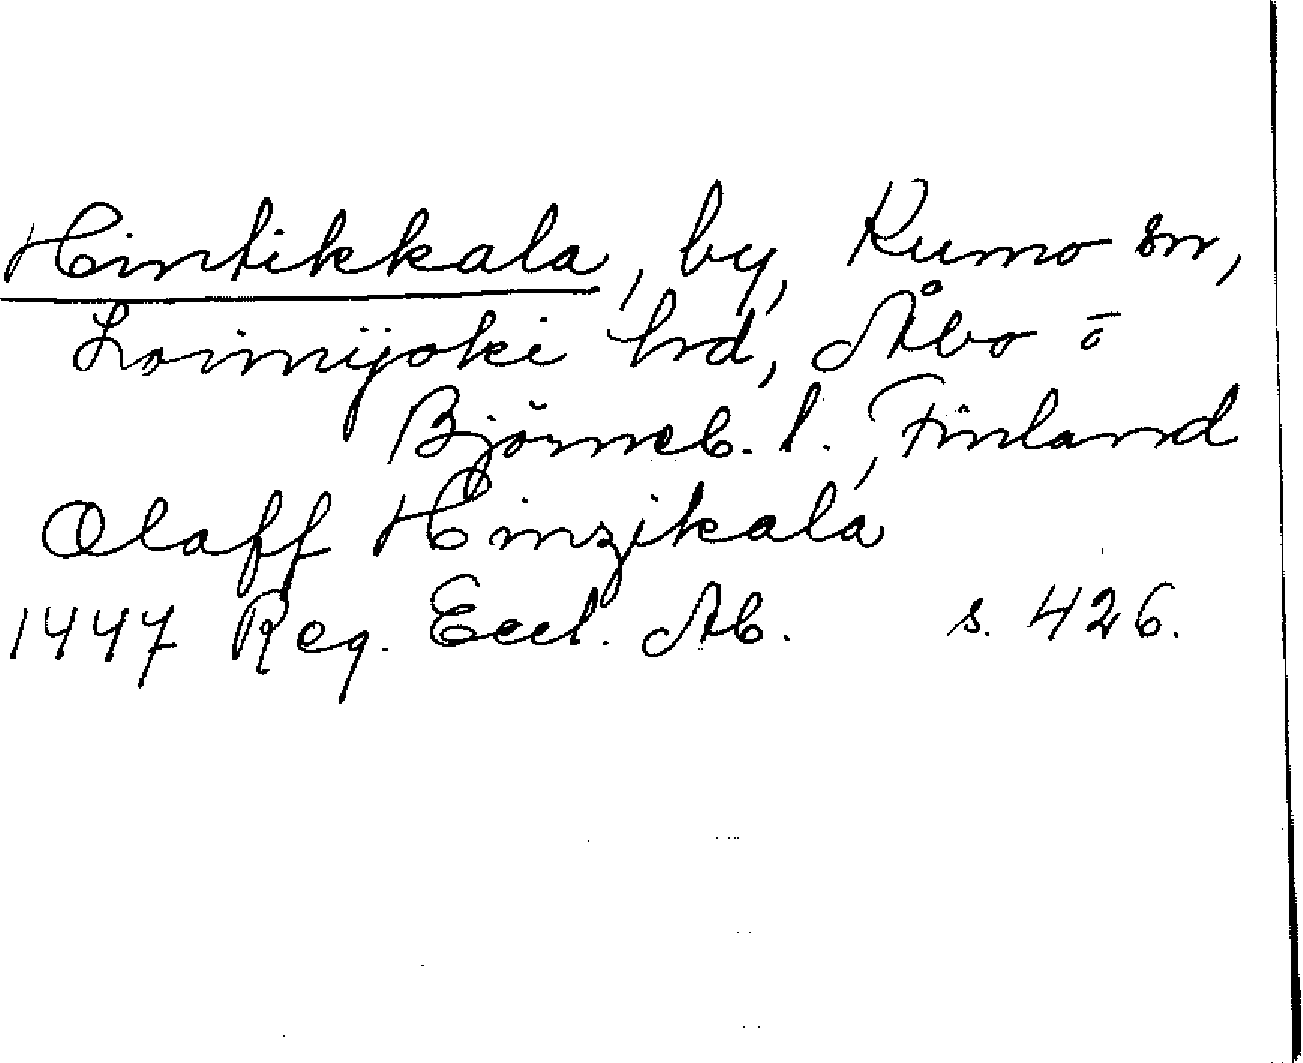 Hintikkala, by, Kumo sn,
Loimijoki hrd, Åbo o
Björneb. l., Finland
Olaff Hinzikala
1447 Reg. Eccl. Ab. s. 426.